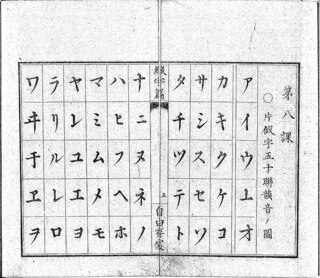 第八課
○片假字五十聯韻音ノ圖
アイウエオ
カキクケコ
サシスセソ
タチツテト
綴字篇
ナニヌネノ
ハヒフヘホ
マミムメモ
ヤイユエヨ
ラリルレロ
ワヰ于ヱヲ